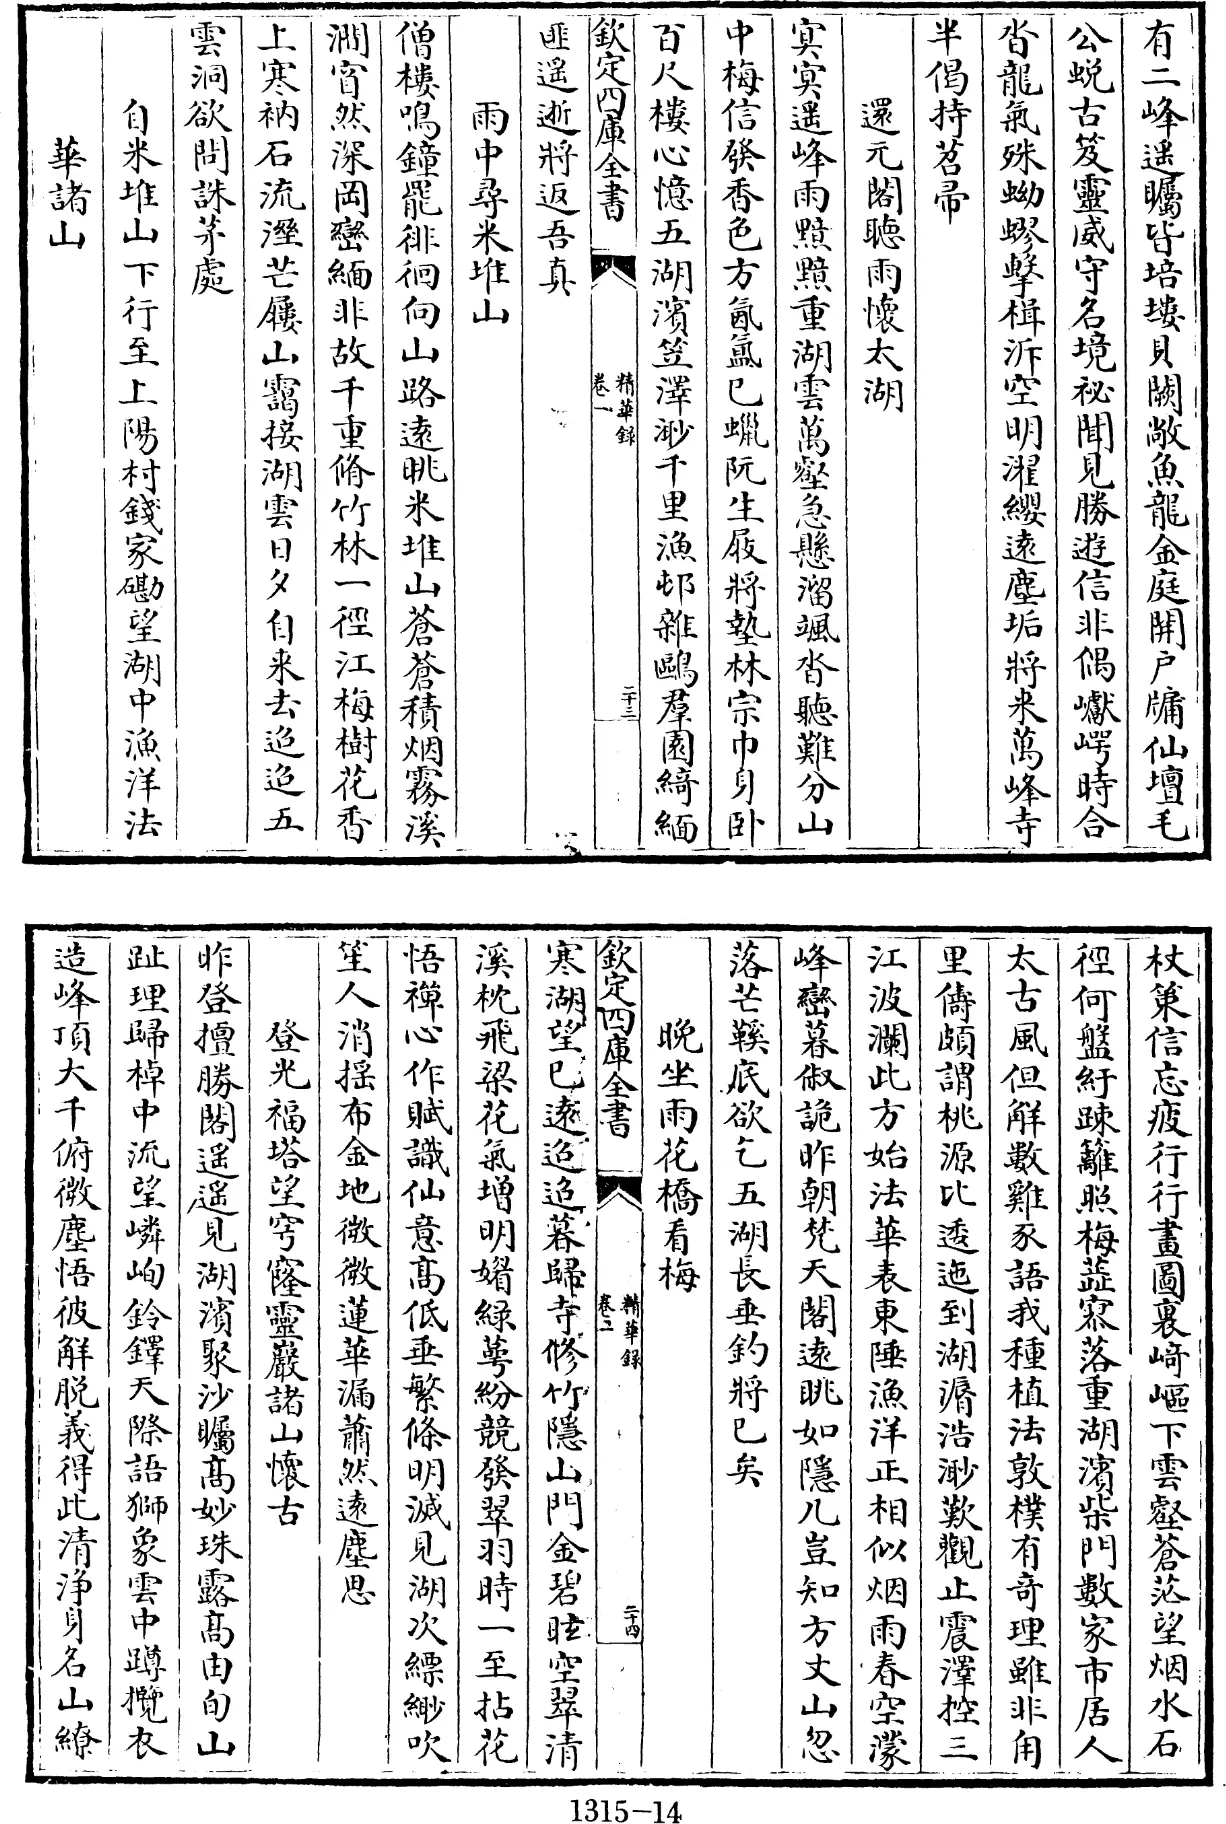 有二峰遥矚皆培塿貝闕敞魚龍金庭開戶牖仙壇毛
公蛻古笈靈威守名境祕聞見勝遊信非偶巘崿時合
沓龍氣殊蚴蟉擊楫泝空明濯纓遠塵垢將来萬峰寺
半偈持苕帚
還元閣聴雨懷太湖
㝠㝠遥峰雨黯黯重湖雲萬壑急懸溜颯沓聴難分山
中梅信發香色方氤氲已蠟阮生屐將墊林宗巾身卧
百尺樓心憶五湖濱笠澤渺千里漁邨雜鷗羣園綺緬
欽定四庫全書
精華錄
卷一
二十三
匪遥逝將返吾真
雨中尋米堆山
僧樓鳴鐘罷徘徊向山路遠眺米堆山蒼蒼積烟霧溪
澗窅然深岡巒緬非故千重脩竹林一徑江梅樹花香
上寒衲石流溼芒屨山靄接湖雲日夕自来去迢迢五
雲洞欲問誅茅處
自米堆山下行至上陽村錢家磡望湖中漁洋法
華諸山
杖策信忘疲行行畫圖裏崎嶇下雲壑蒼茫望烟水石
徑何盤紆疎籬照梅蘂寥落重湖濱柴門數家市居人
太古風但解數雞豕語我種植法敦樸有竒理雖非甪
里儔頗謂桃源比逶迤到湖漘浩渺歎觀止震澤控三
江波瀾此方始法華表東陲漁洋正相似烟雨春空濛
峰巒暮俶詭昨朝梵天閣遠眺如隱几豈知方丈山忽
落芒鞵底欲乞五湖長垂釣將已矣
晚坐雨花橋看梅
欽定四庫全書
精華錄
卷二
二十四
寒湖望已遠迢迢暮歸寺修竹隱山門金碧眩空翠清
溪枕飛梁花氣增明媚緑萼紛競發翠羽時一至拈花
悟禪心作賦識仙意髙低垂繁條明滅見湖次縹緲吹
笙人消揺布金地微微蓮華漏蕭然遠塵思
登光福塔望穹窿靈巖諸山懷古
昨登擅勝閣遥遥見湖濱聚沙矚髙妙珠露髙由旬山
趾理歸棹中流望嶙峋鈴鐸天際語獅象雲中蹲攬衣
造峰頂大千俯微塵悟彼解脱義得此清浄身名山繚
1315-14